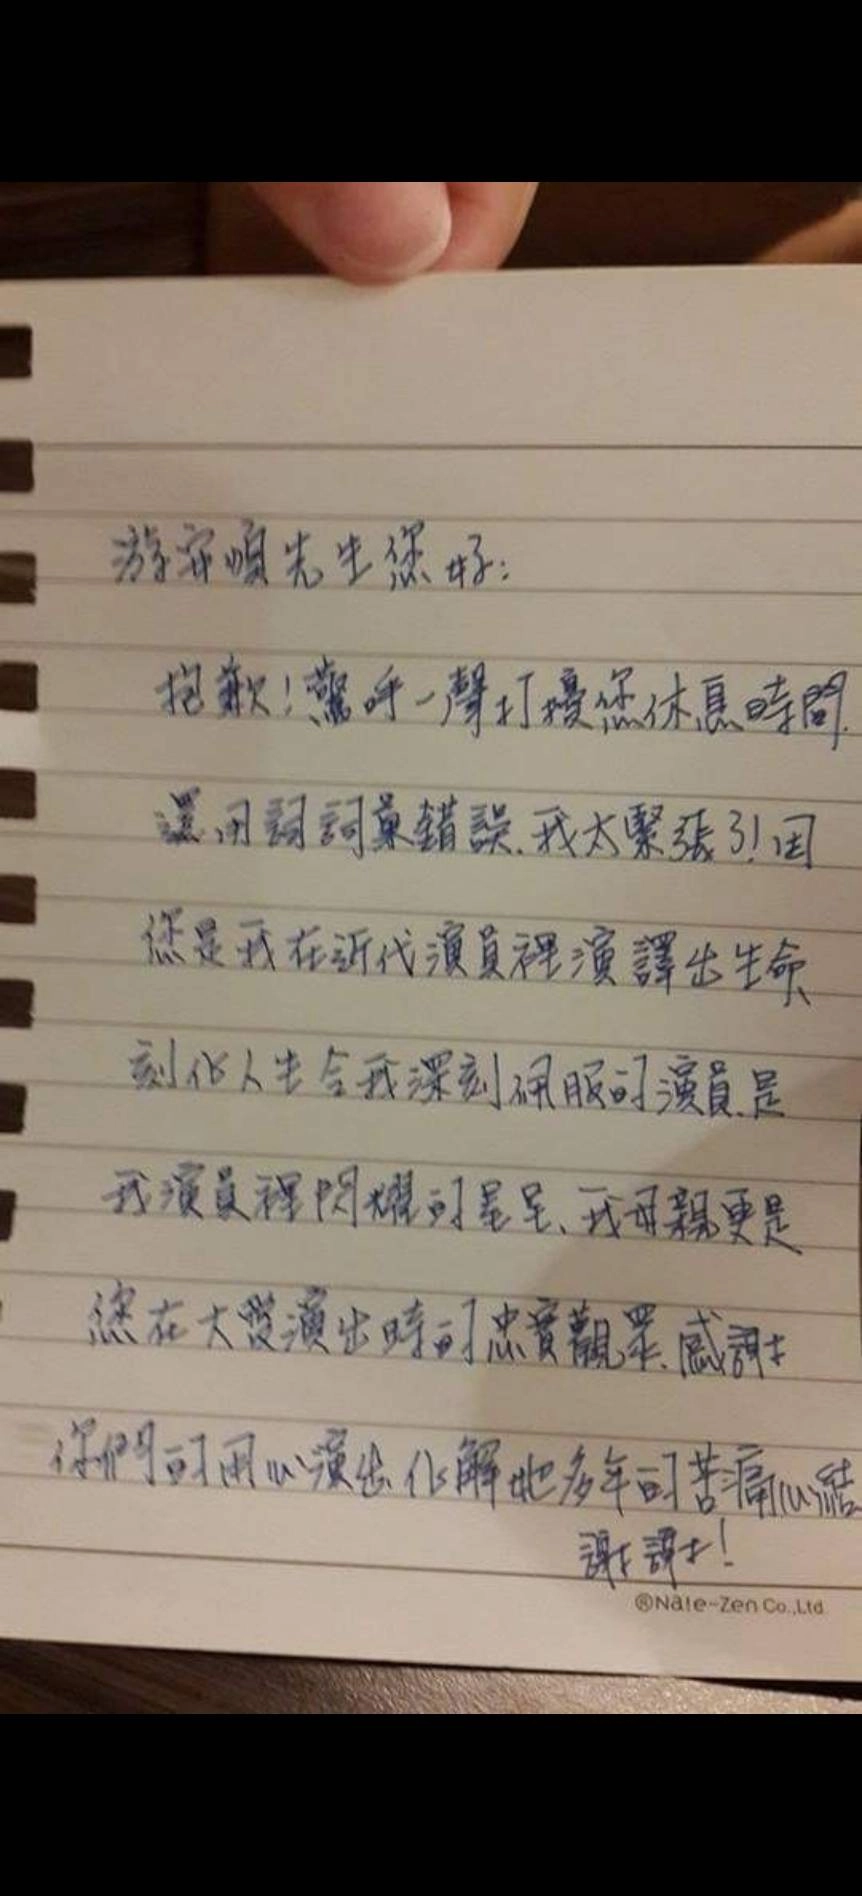 游安順先生您好：
抱歉！驚呼一聲打擾您休息時間.
還用詞詞彙錯誤.我太緊張了！因
您是我在近代演員裡演譯出生命、
刻化人生令我深刻佩服的演員.是
我演員裡閃耀的星星、我母親更是
您在大愛演出時的忠實觀眾.感謝
你們的用心演出化解她多年的苦痛心結
謝謝！
®Nate-Zen Co.,Ltd.